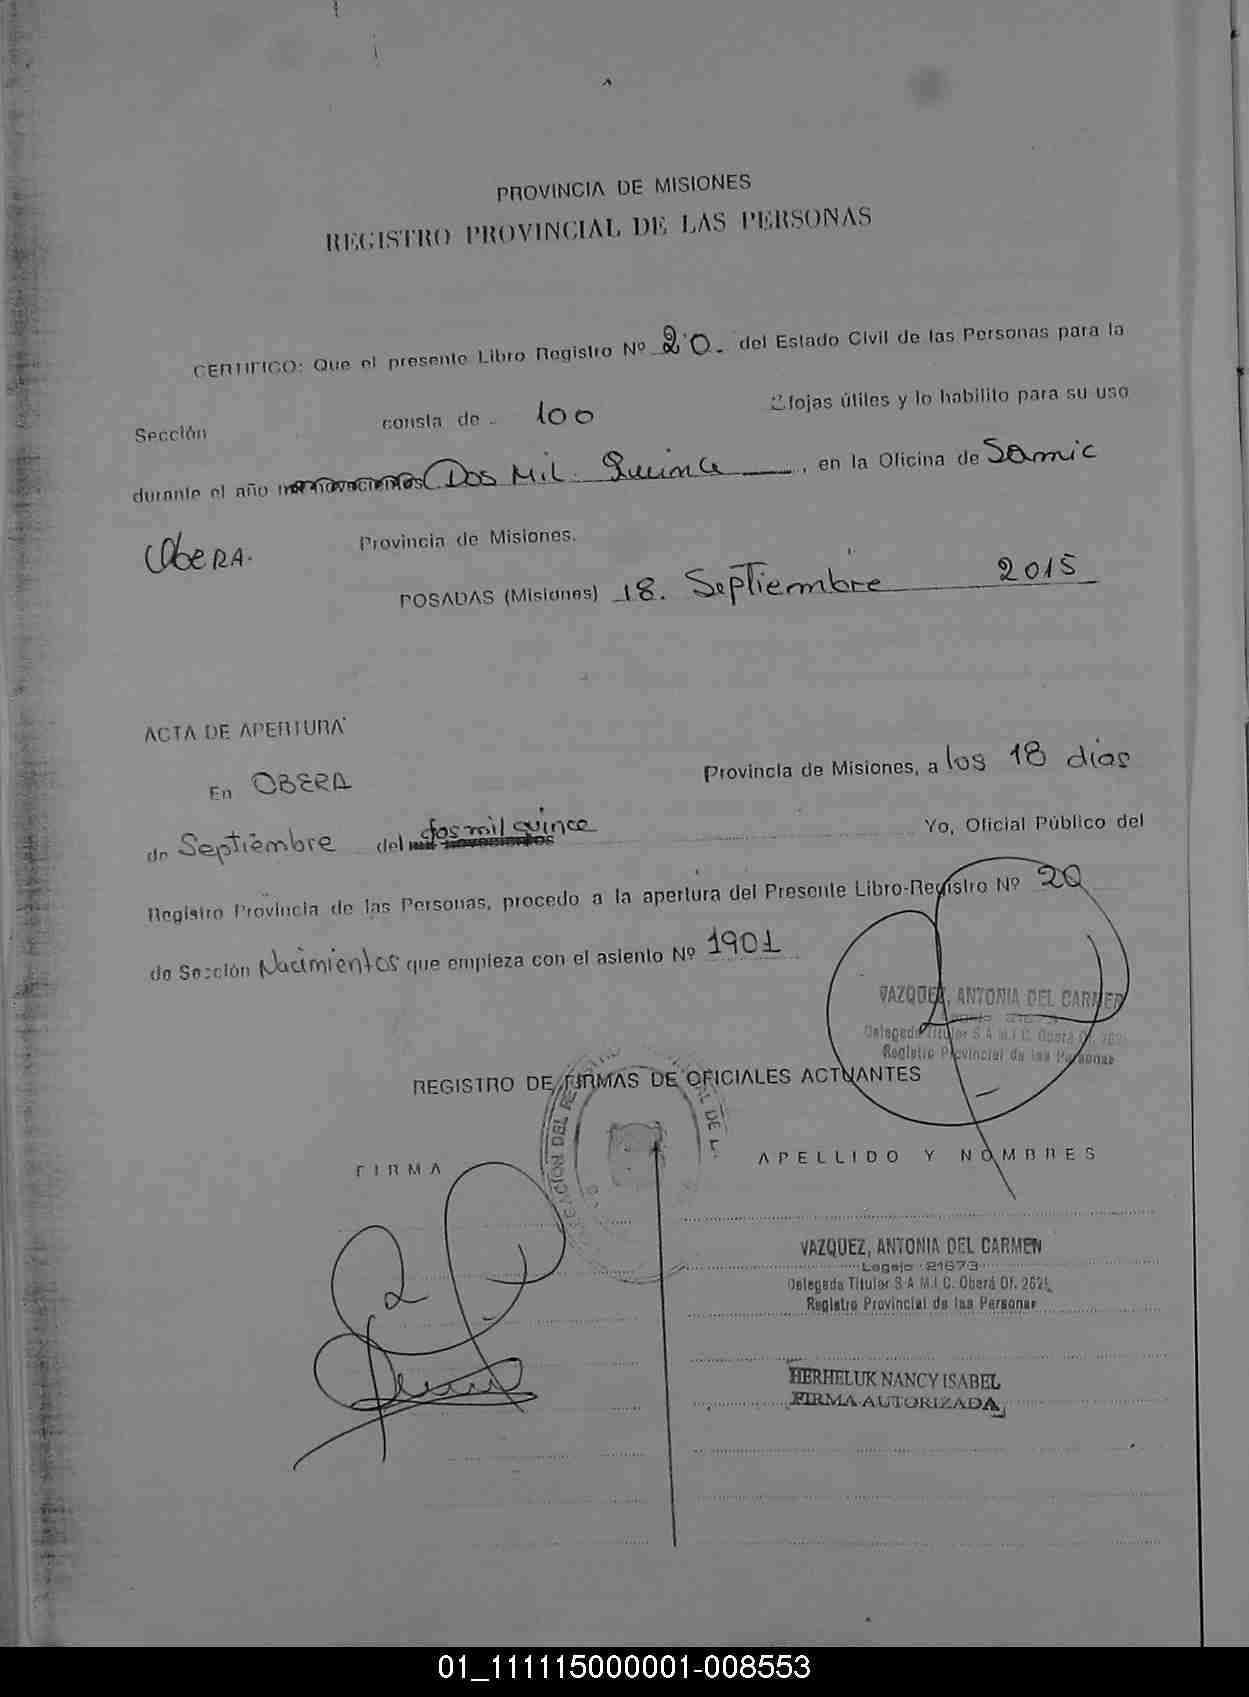 PROVINCIA DE MISIONES
REGISTRO PROVINCIAL DE LAS PERSONAS
CERTIFICO: Que el presente Libro Registro Nº 20. del Estado Civil de las Personas para la
Sección consta de 100 fojas útiles y lo habilito para su uso
durante el año mil novecientos Dos Mil Quince, en la Oficina de Samic
Obera. Provincia de Misiones.
POSADAS (Misiones) 18. Septiembre 2015
ACTA DE APERTURA
En OBERA Provincia de Misiones, a los 18 días
de Septiembre del mil novecientos dos mil quince Yo, Oficial Público del
Registro Provincia de las Personas, procedo a la apertura del Presente Libro-Registro Nº 20
de Sección Nacimientos que empieza con el asiento Nº 1901
VAZQUEZ, ANTONIA DEL CARMEN
Legajo 21673
Delegada Titular S.A.M.I.C. Oberá Of. 262
Registro Provincial de las Personas
REGISTRO DE FIRMAS DE OFICIALES ACTUANTES
FIRMA APELLIDO Y NOMBRES
VAZQUEZ, ANTONIA DEL CARMEN
Legajo 21673
Delegada Titular S.A.M.I.C. Oberá Of. 262
Registro Provincial de las Personas
HERHELUK NANCY ISABEL
FIRMA AUTORIZADA
01_111115000001-008553